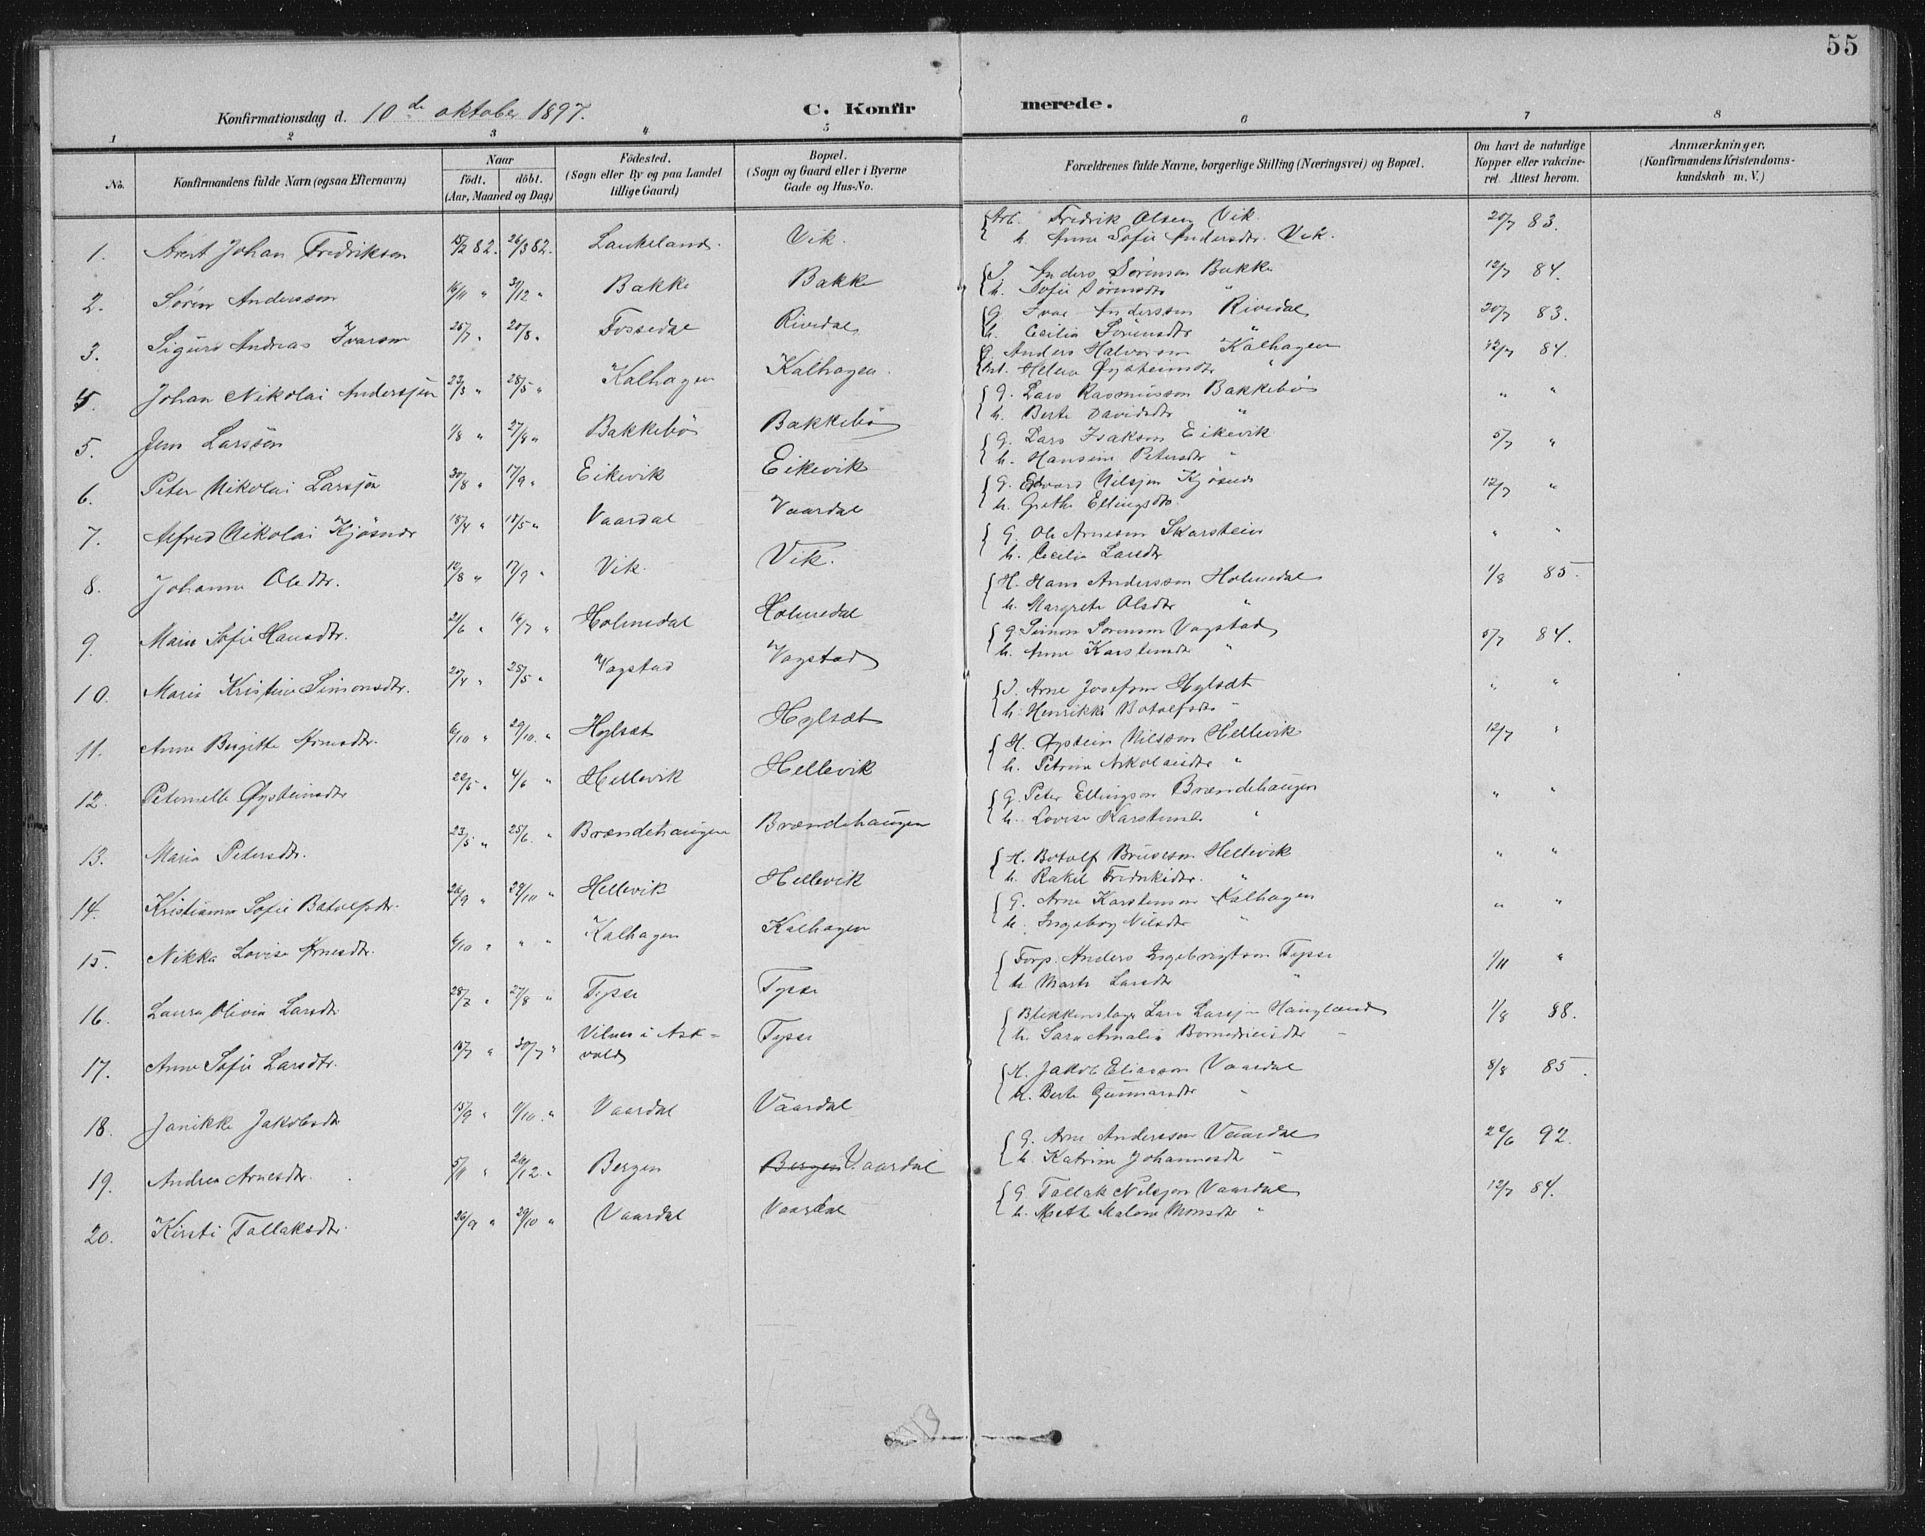 55
Konfirmationsdag d. 10de oktober 1897.
C. Konfirmerede.
1 2 3 4 5 6 7 8
No.
Konfirmandens fulde Navn (ogsaa Efternavn)
Naar
födt. döbt.
(Aar, Maaned og Dag)
Födested.
(Sogn eller By og paa Landet
tillige Gaard)
Bopæl.
(Sogn og Gaard eller i Byerne
Gade og Hus-No.
Forældrenes fulde Navne, borgerlige Stilling (Næringsvei) og Bopæl.
Om havt de naturlige
Kopper eller vakcine-
ret. Attest herom.
Anmærkninger.
(Konfirmandens Kristendoms-
kundskab m. V.)
1. Arent Johan Fredriksen 82. 26/3 82. Laukeland. Vik.
Arb. Fredrik Olsen Vik 20/7 83.
h. Anne Sofie Andersdtr. Vik.
2. Søren Andersson 16/11 " 31/12 " Bakke Bakke
Anders Sørenson Bakke 12/7 84.
h. Sofie Sørensdtr "
3. Sigurd Andreas Ivarson 25/7 " 20/8 " Fossedal Rivedal
G. Ivar Andersson Rivedal 20/7 83.
h. Cecilia Sørensdtr "
4. Johan Nikolai Anderssön 23/3 " 28/5 " Kalhagen Kalhagen.
G. Anders Halvorson Kalhagen 12/7 84.
Helene Øysteinsdtr "
5. Jens Larssön 1/8 " 27/8 " Bakkebö Bakkebö
G. Lars Rasmusson Bakkebö " "
h. Berte Davidsdtr "
6. Peter Nikolai Larsjön 30/8 " 17/9 " Eikevik Eikevik
G. Lars Isakson Eikevik 5/7 "
h. Hansine Petersdtr "
7. Alfred Nikolai Kjösnes 18/4 " 18/5 " Vaardal Vaardal
G. Edvard Nilsjen Kjösnes 12/7 "
h. Grethe Ellingsdtr
8. Johanne Olsdtr. 12/8 " 17/9 " Vik. Vik.
G. Ole Arneson Skarstein " "
h. Cecilie Larsdtr
9. Marie Sofie Hansdtr. 21/6 " 16/7 " Holmedal Holmedal
H. Hans Andersson Holmedal 1/8 85.
h. Margrete Olsdtr "
10. Maria Kristine Simonsdtr. 20/4 " 28/5 " Vagstad Vagstad
G. Simon Sørenson Vagstad 5/7 84.
h. Anne Karstensdtr "
11. Anne Birgitte Arnesdtr. 6/10 " 29/10 " Hylsæt Hylsæt
Arne Josefson Hylsæt " "
h. Henrikke Botolfsdtr "
12. Peternelle Øysteinsdtr 22/5 " 4/6 " Hellevik Hellevik
H. Øystein Nilsson Hellevik 12/7 "
h. Petrina Nikolaisdtr "
13. Maria Petersdtr. 23/5 " 25/6 " Brændehaugen Brændehaugen
G. Peter Ellingson Brændehaugen " "
h. Lovise Karstensd. "
14. Kristianna Sofie Botolfsdtr. 26/9 " 29/10 " Hellevik Hellevik
H. Botolf Bruseson Hellevik " "
h. Rakel Fredrikidtr. "
15. Nikka Lovise Arnesdtr. 6/10 " " " Kalhagen Kalhagen
G. Arne Karstenson Kalhagen " "
h. Ingeborg Nilsdtr "
16. Laura Olivia Larsdtr 28/7 " 27/8 " Tysse Tysse
Forp. Anders Ingebrigtson Tysse 1/11 "
h. Marta Larsdtr "
17. Anne Sofie Larsdtr. 15/7 " 30/7 " Vilnes i Ask-
vold Tysse
Blikkenslager Lars Larsjen Haugland 1/8 88.
h. Sara Amalia "
18. Janikke Jakobsdtr 15/9 " 1/10 " Vaardal Vaardal
H. Jakob Eliasson Vaardal 8/8 85.
h. Berte Gunnarsdtr "
19. Andrea Arnesdtr. 5/11 " 26/12 " Bergen Bergen Vaardal
G. Arne Andersson Vaardal 22/6 92.
h. Katrine Johannesdtr "
20. Kirsti Tollaksdtr. 26/9 " 29/10 " Vaardal Vaardal
G. Tallak Nilsjen Vaardal 12/7 84.
h. Mette Malene Monsdtr "